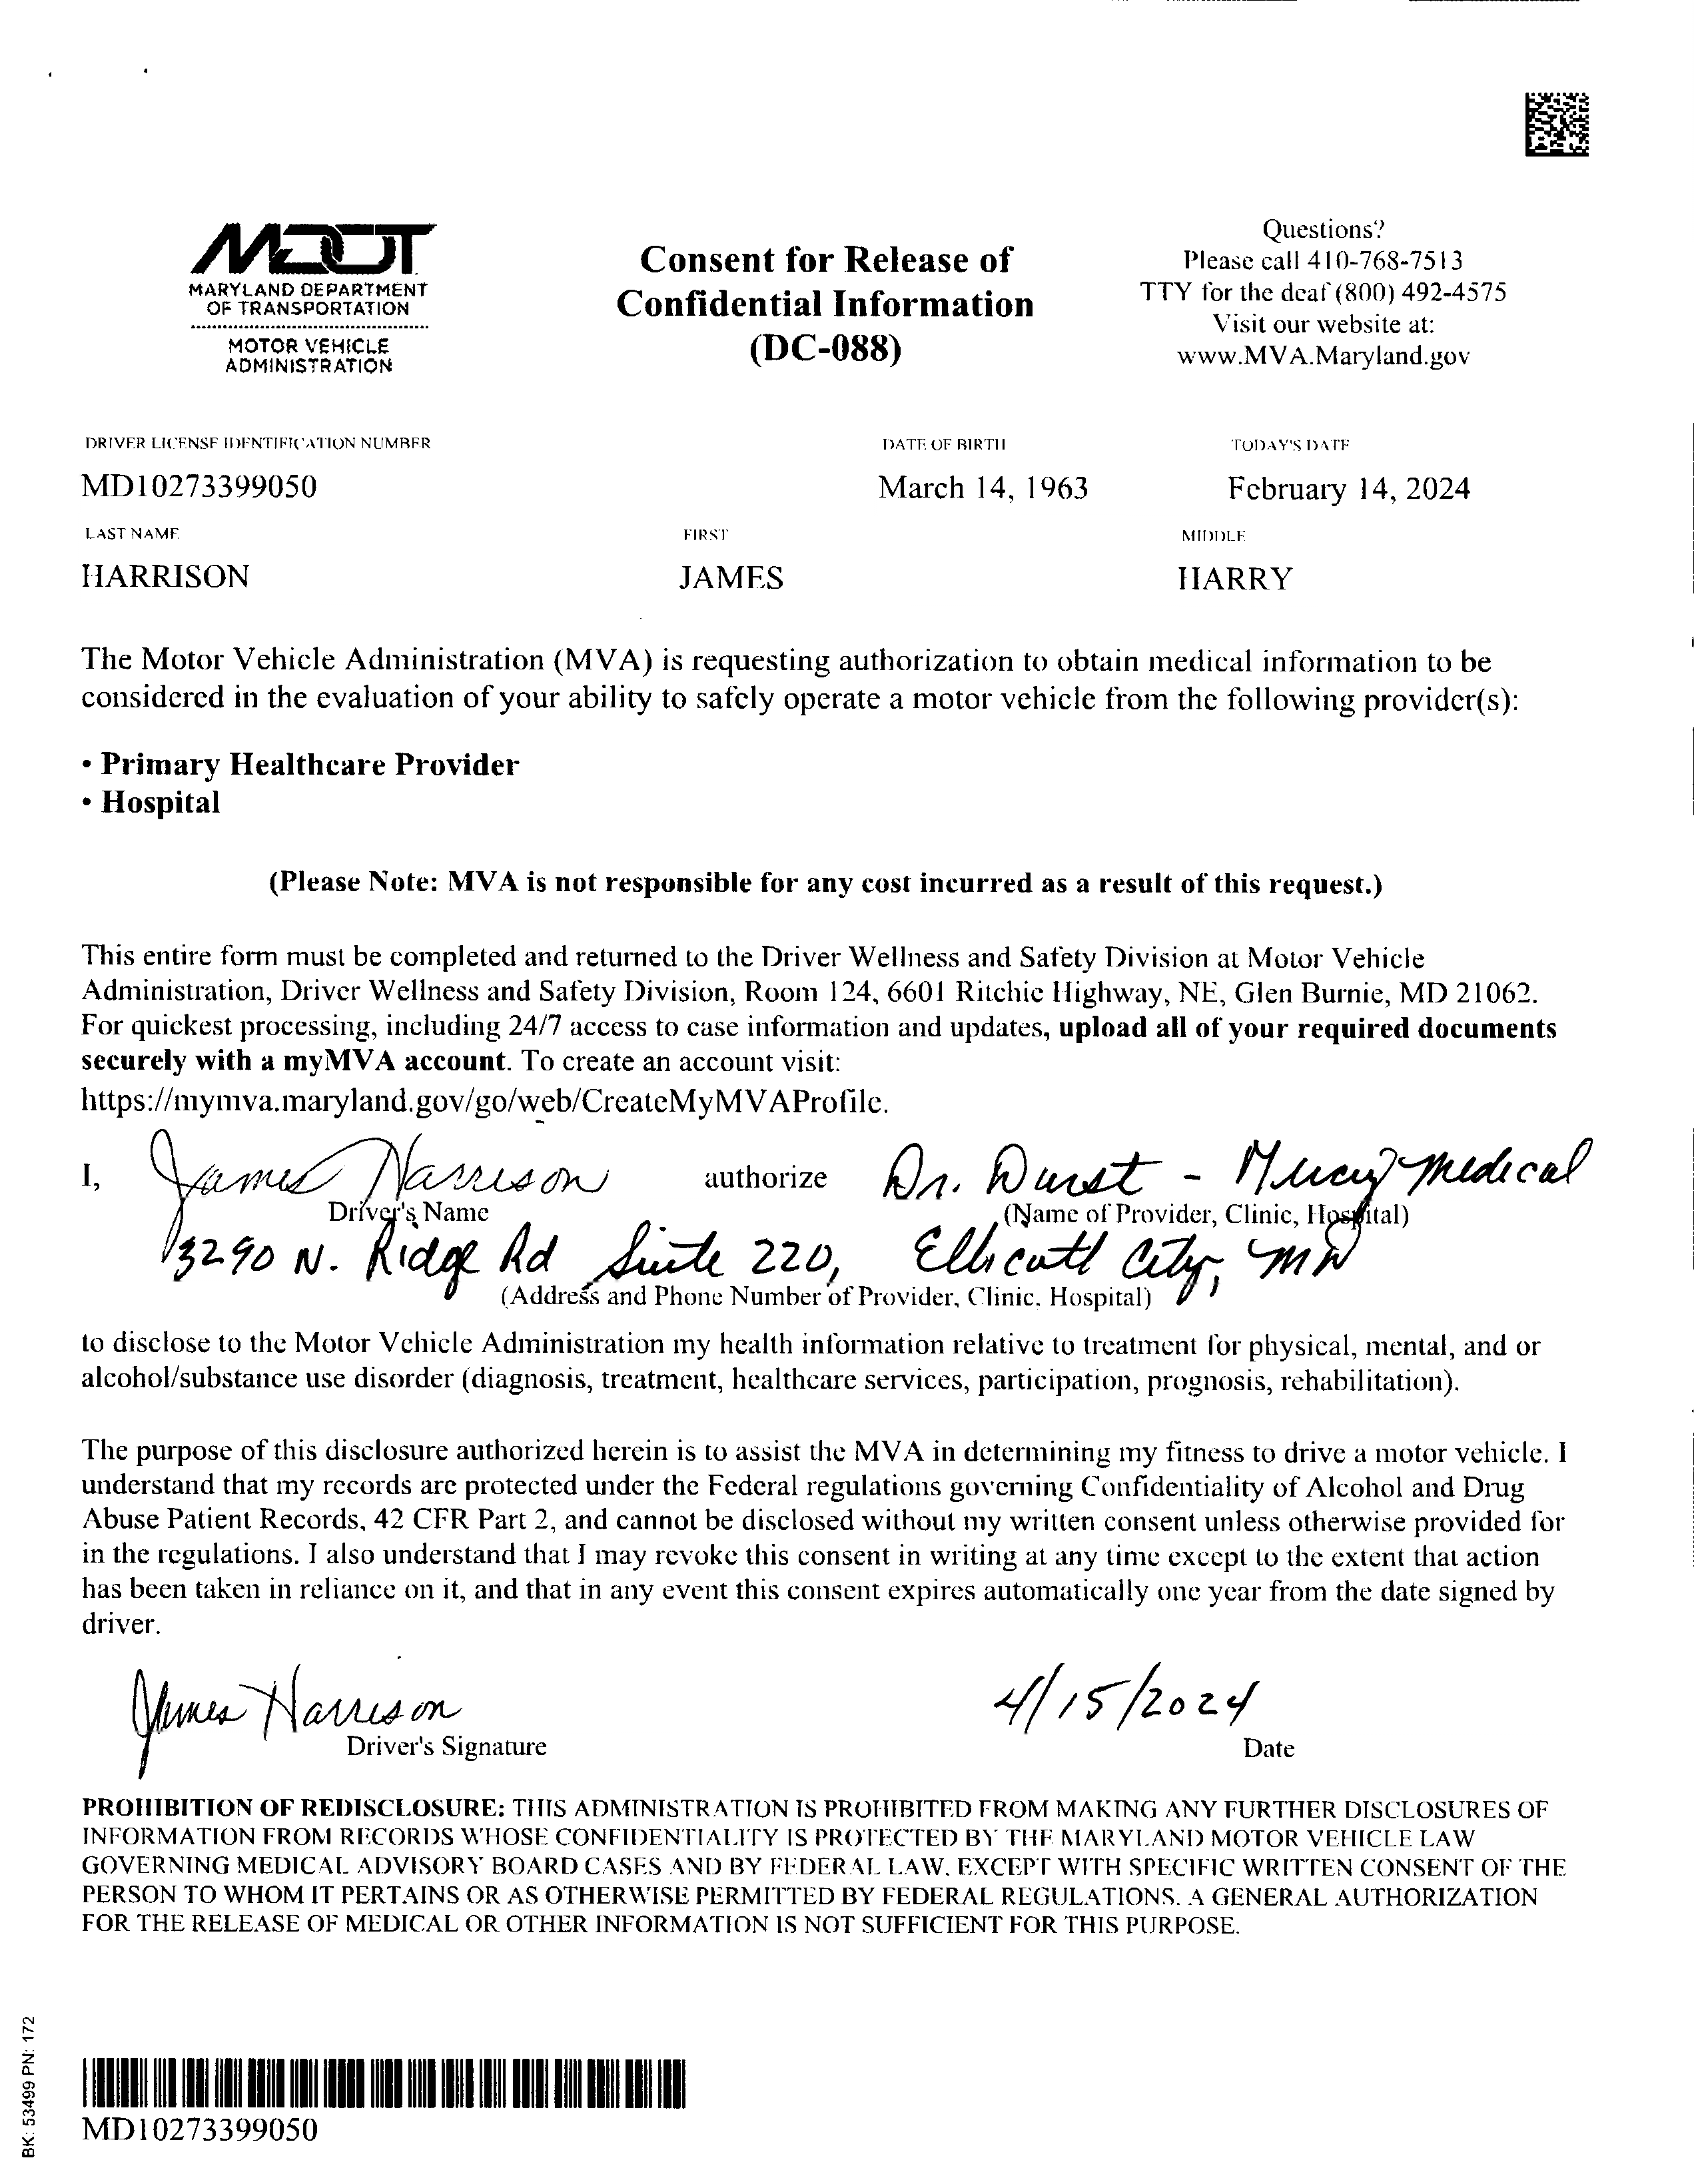 MDOT
MARYLAND DEPARTMENT
OF TRANSPORTATION
MOTOR VEHICLE
ADMINISTRATION
Consent for Release of
Confidential Information
(DC-088)
Questions?
Please call 410-768-7513
TTY for the deaf (800) 492-4575
Visit our website at:
www.MVA.Maryland.gov
DRIVER LICENSE IDENTIFICATION NUMBER DATE OF BIRTH TODAY'S DATE
MD10273399050 March 14, 1963 February 14, 2024
LAST NAME FIRST MIDDLE
HARRISON JAMES HARRY
The Motor Vehicle Administration (MVA) is requesting authorization to obtain medical information to be
considered in the evaluation of your ability to safely operate a motor vehicle from the following provider(s):
• Primary Healthcare Provider
• Hospital
(Please Note: MVA is not responsible for any cost incurred as a result of this request.)
This entire form must be completed and returned to the Driver Wellness and Safety Division at Motor Vehicle
Administration, Driver Wellness and Safety Division, Room 124, 6601 Ritchie Highway, NE, Glen Burnie, MD 21062.
For quickest processing, including 24/7 access to case information and updates, upload all of your required documents
securely with a myMVA account. To create an account visit:
https://mymva.maryland.gov/go/web/CreateMyMVAProfile.
I, James Harrison authorize Dr. Durst - Mercy Medical
Driver's Name (Name of Provider, Clinic, Hospital)
3290 N. Ridge Rd Suite 220, Ellicott City, MD
(Address and Phone Number of Provider, Clinic, Hospital)
to disclose to the Motor Vehicle Administration my health information relative to treatment for physical, mental, and or
alcohol/substance use disorder (diagnosis, treatment, healthcare services, participation, prognosis, rehabilitation).
The purpose of this disclosure authorized herein is to assist the MVA in determining my fitness to drive a motor vehicle. I
understand that my records are protected under the Federal regulations governing Confidentiality of Alcohol and Drug
Abuse Patient Records, 42 CFR Part 2, and cannot be disclosed without my written consent unless otherwise provided for
in the regulations. I also understand that I may revoke this consent in writing at any time except to the extent that action
has been taken in reliance on it, and that in any event this consent expires automatically one year from the date signed by
driver.
James Harrison 4/15/2024
Driver's Signature Date
PROHIBITION OF REDISCLOSURE: THIS ADMINISTRATION IS PROHIBITED FROM MAKING ANY FURTHER DISCLOSURES OF
INFORMATION FROM RECORDS WHOSE CONFIDENTIALITY IS PROTECTED BY THE MARYLAND MOTOR VEHICLE LAW
GOVERNING MEDICAL ADVISORY BOARD CASES AND BY FEDERAL LAW. EXCEPT WITH SPECIFIC WRITTEN CONSENT OF THE
PERSON TO WHOM IT PERTAINS OR AS OTHERWISE PERMITTED BY FEDERAL REGULATIONS. A GENERAL AUTHORIZATION
FOR THE RELEASE OF MEDICAL OR OTHER INFORMATION IS NOT SUFFICIENT FOR THIS PURPOSE.
MD10273399050
BK: 53499 PN: 172